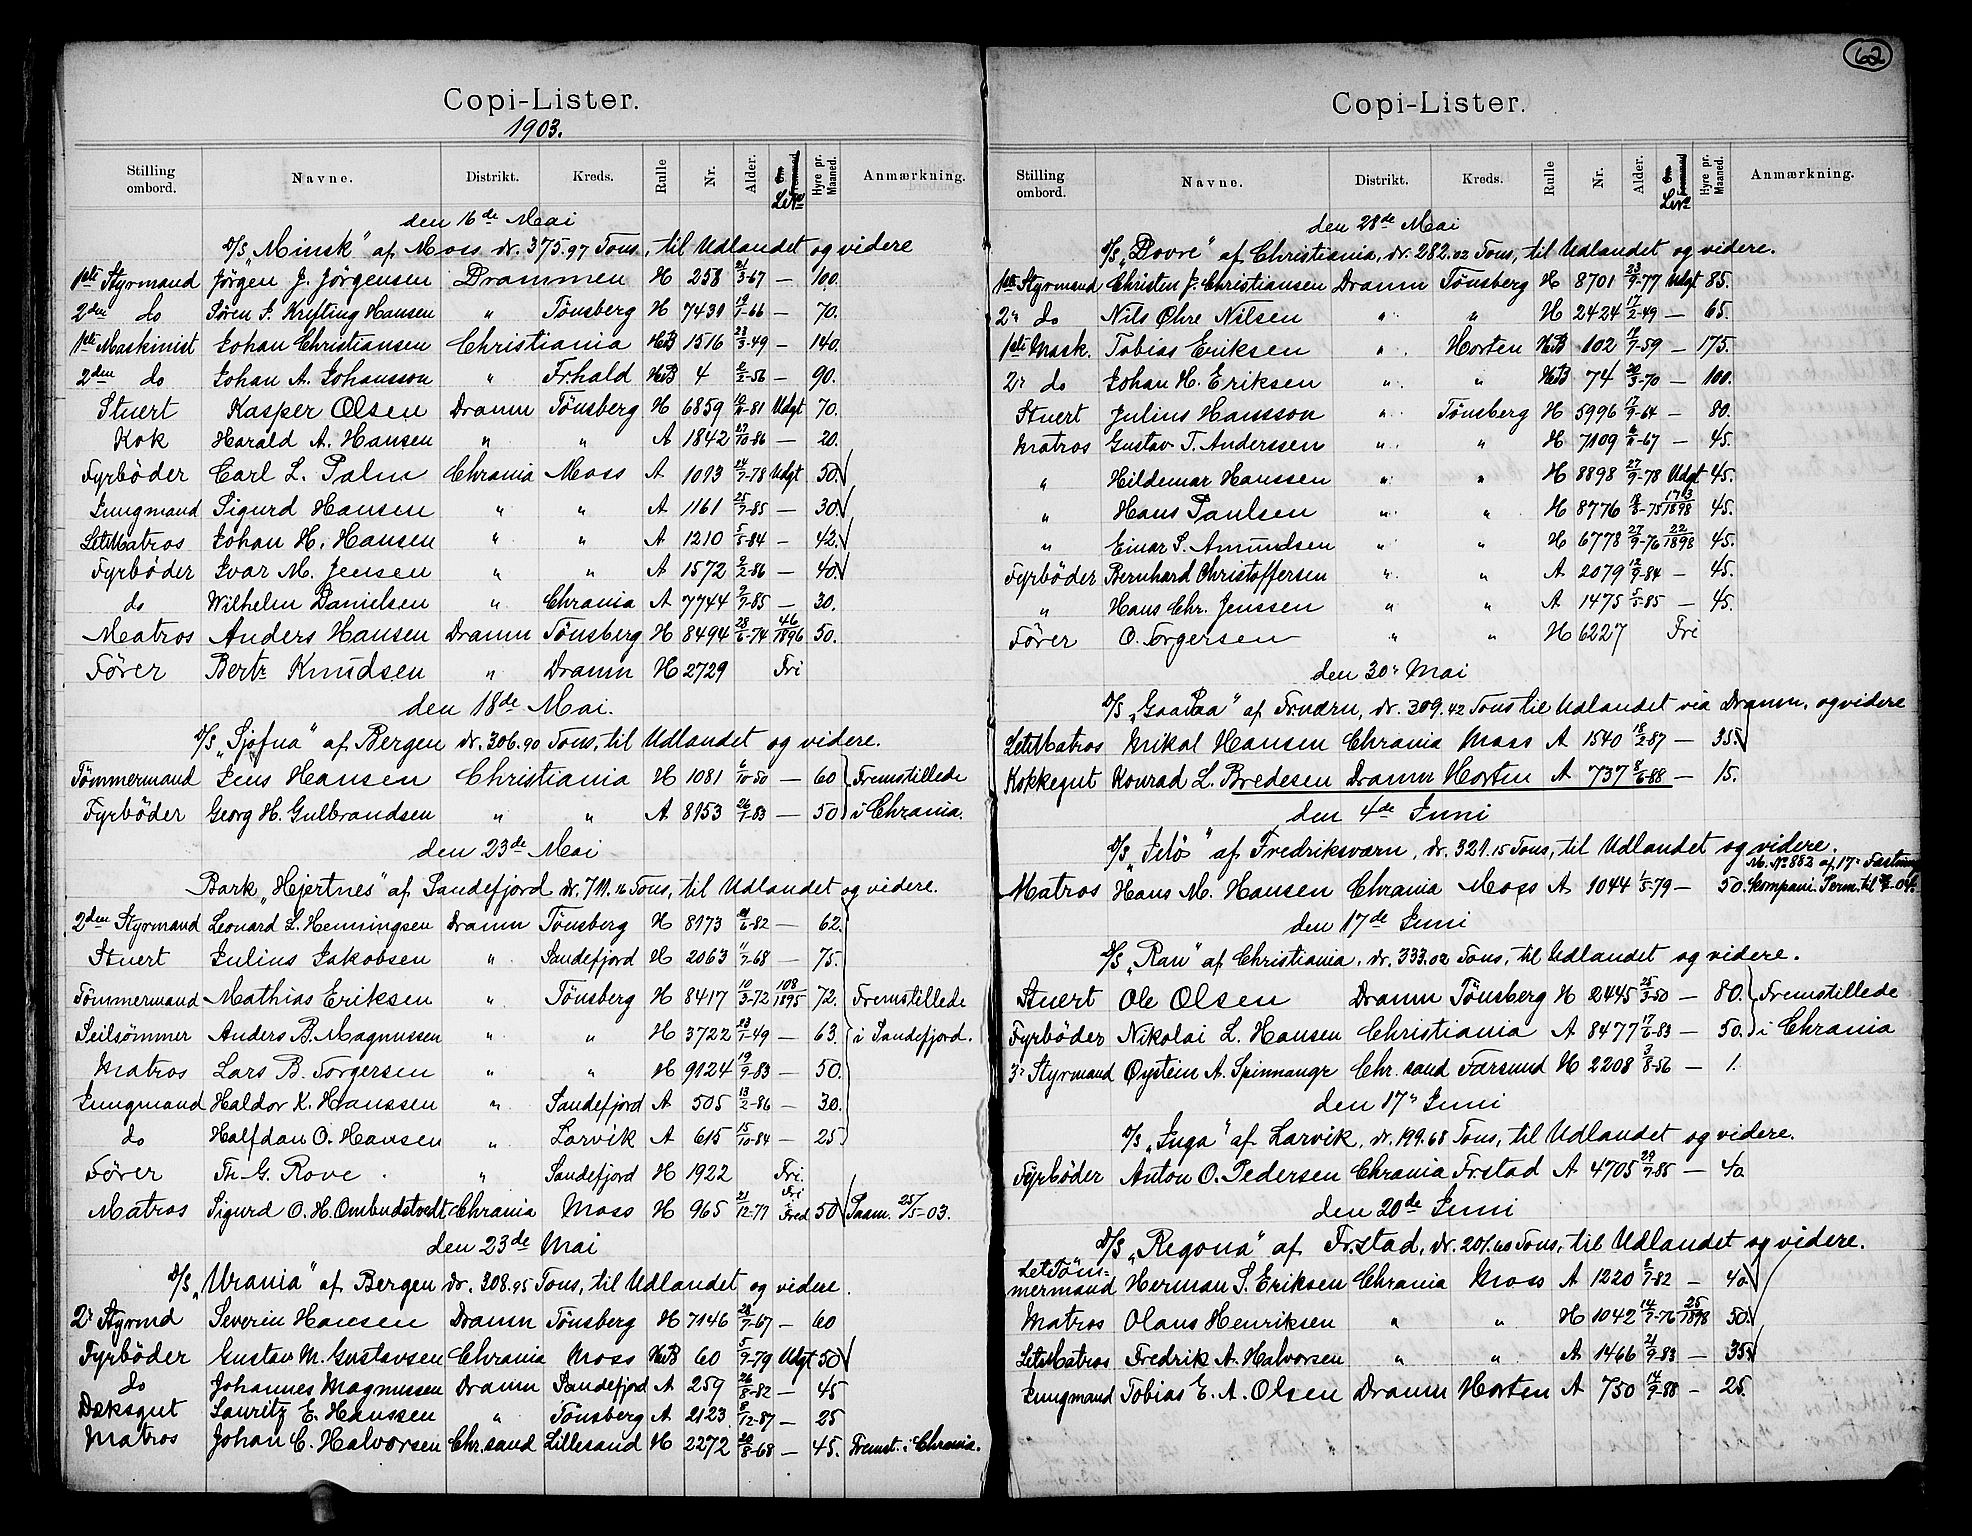 Copi-Lister.
1903.
Stilling ombord. Navne. Distrikt. Kreds. Rulle Nr. Alder. Hyre pr. Maaned. Anmærkning.
den 16de Mai
D/S „Minsk" af Moss dr. 375.97 Tons, til Udlandet og videre
1ste Styrmand Jörgen J. Jörgensen Drammen H 258 21/3-67 — 100.
2den do Sören S. Krefting Hansen " Tönsberg H 7431 19/7-66 — 70.
1ste Maskinist Johan Christiansen Christiania HB 1516 23/3-49 — 140.
2den do Johan A. Johansson " Fr.hald HB 4 2/2-56 — 90.
Stuert Kasper Olsen Dramn Tönsberg H 6859 19/6-81 Udgt 70.
Kok Harald A. Hansen " " A 1842 27/10-86 — 20.
Fyrböder Carl L. Palm Chrania Moss A 1093 24/7-78 Udgt 50.
Jungmand Sigurd Hansen " " A 1161 25/9-85 — 30.
LetMatros Johan H. Hansen " " A 1210 5/5-84 — 42.
Fyrböder Ivar M. Jensen " " A 1572 2/2-86 — 40.
do Wilhelm Danielsen " Chrania A 7744 9/7-85 — 30.
Matros Anders Hansen Dramn Tönsberg H 8494 28/6-74 46/1896 50.
Förer Bertr Knudsen " Dramn H 2729 Fri
den 18de Mai.
D/S „Sjofna" af Bergen dr. 306.90 Tons, til Udlandet og videre.
Tömmermand Jens Hansen Christiania H 1081 6/10-50 — 60 Fremstillede
Fyrböder Georg H. Gulbrandsen " " A 8953 26/7-83 — 50 i Chrania.
den 23de Mai
Bark „Hjertnes" af Sandefjord dr. 711.16 Tons, til Udlandet og videre.
2den Styrmand Leonard L. Henningsen Dramn Tönsberg H 8973 21/6-82 — 62.
Stuert Julius Jakobsen " Sandefjord H 2063 11/7-68 — 75.
Tömmermand Mathias Eriksen " Tönsberg H 8417 10/3-72 108/1895 72. Fremstillede
Seilsömmer Anders B. Magnussen " " H 3722 23/1-49 — 63. i Sandefjord.
Matros Lars B. Torgersen " " H 9124 19/9-83 — 50.
Jungmand Haldor K. Hanssen " Sandefjord A 505 13/2-86 — 30.
do Halfdan O. Hansen " Larvik A 615 15/10-84 — 25
Förer Th. G. Rove " Sandefjord H 1922 Fri.
Matros Sigurd O. H. Ombudstvedt Chrania Moss H 965 21/12-77 Fri Fred 50 Paam. 25/5-03.
den 23de Mai
D/S „Urania" af Bergen dr. 308.95 Tons, til Udlandet og videre.
2r Styrmd Severin Hansen Dramn Tönsberg H 7146 28/7-67 — 60
Fyrböder Gustav M. Gustavsen Chrania Moss HB 60 5/9-79 Udgt 50
do Johannes Magnussen Dramn Sandefjord A 259 26/8-82 — 45
Dæksgut Lauritz E. Hanssen " Tönsberg A 2123 8/12-87 — 25
Matros Johan C. Halvorsen Chr.sand Lillesand H 2272 20/8-68 — 45. Fremst. i Chrania.
62
Copi-Lister.
Stilling ombord. Navne. Distrikt. Kreds. Rulle Nr. Alder. Hyre pr. Maaned. Anmærkning.
den 28de Mai
D/S „Dovre" af Christiania, dr. 282.02 Tons, til Udlandet og videre.
1ste Styrmand Christen J. Christiansen Dramn Tönsberg H 8701 23/9-77 Udgt 85.
2r do Nils Ohre Nilsen " " H 2424 17/2-49 — 65.
1ste Mask. Tobias Eriksen " Horten HB 102 19/7-59 — 175.
2r do Johan H. Eriksen " " HB 74 20/3-70 — 100.
Stuert Julius Hansson " Tönsberg H 5996 17/9-64 — 80.
Matros Gustav T. Anderssen " " H 7109 6/6-67 — 45.
" Hildemar Hanssen " " H 8898 27/9-78 Udgt 45.
" Hans Paulsen " " H 8776 12/8-75 173/1898 45.
" Einar S. Amundsen " " H 6778 27/9-76 22/1898 45.
Fyrböder Bernhard Christoffersen " " A 2079 12/9-84 — 45.
" Hans Chr. Jenssen " " A 1475 5/5-85 — 45.
Förer O. Torgersen " " H 6227 Fri
den 30r Mai
D/S „Gaapaa" af Frværn, dr. 309.42 Tons til Udlandet via Dramn, og videre
LetMatros Mikal Hansen Chrania Moss A 1540 18/2-87 — 35.
Kokkegut Konrad L. Bredesen Dramn Horten A 737 8/6-88 — 15.
den 4de Juni
D/S „Jelö" af Fredriksværn, dr. 321.15 Tons, til Udlandet og videre.
M. No 882 af 17r Fæstnings
Matros Hans M. Hansen Chrania Moss A 1044 1/5-79 — 50. kompani. Perm. til -04.
den 17de Juni
D/S „Ran" af Christiania, dr. 333.02 Tons, til Udlandet og videre.
Stuert Ole Olsen Dramn Tönsberg H 2445 25/3-50 — 80. Fremstillede
Fyrböder Nikolai L. Hansen Christiania A 8477 17/6-83 — 50. i Chrania
3r Styrmand Oystein A. Spinnangr Chr.sand Farsund H 2208 3/8-56 — 1.
den 17r Juni
D/S „Inga" af Larvik, dr. 199.68 Tons, til Udlandet og videre.
Fyrböder Anton O. Pedersen Chrania Fr.stad A 4705 29/7-85 — 40.
den 20de Juni
D/S „Regona" af Fr.stad, dr. 201.60 Tons, til Udlandet og videre.
Lettöm-
mermand Herman S. Eriksen Chrania Moss A 1220 8/7-82 — 40
Matros Olaus Henriksen " " H 1042 14/7-76 25/1898 50.
LetMatros Fredrik A. Halvorsen " " A 1466 21/9-83 — 35.
Jungmand Tobias E. A. Olsen Dramn Horten A 750 14/9-88 — 25.